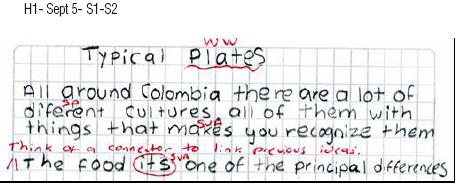 H1- Sept 5- S1-S2
WW
Typical Plates
All around Colombia there are a lot of
SP
diferent cultures, all of them with
SVA
things that makes you recognize them
Think of a connector to link previous ideas.
/1 The food its SVA one of the principal differences